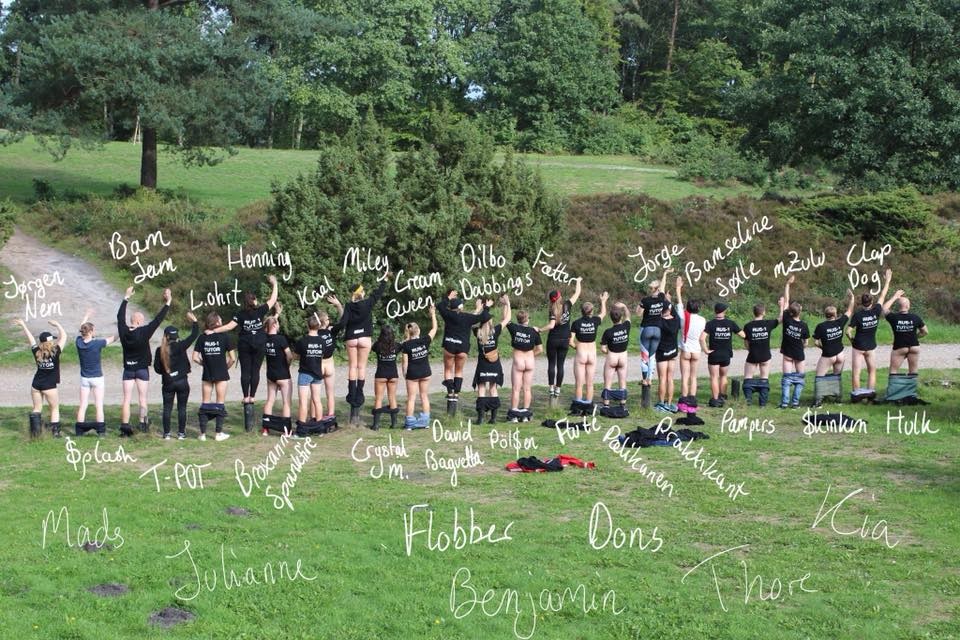 Jørgen
Nem
Bam
Jam
Lohrt
Henning
Kaal
Miley
Cream
Queen
Dilbo
Dabbings
Fatter
Jorge
Bamseline
Sølle
mZulu
Clap
Dog
RUS-1
TUTOR
$plash
T-POT
Broxanne
Spankfire
Crystal
M.
David
Baguetta
Pøl$en
Flute
Palikanen
Praktikant
Pampers
$kinkm
Hulk
Mads
Julianne
Flobber
Benjamin
Dons
Thore
Kia